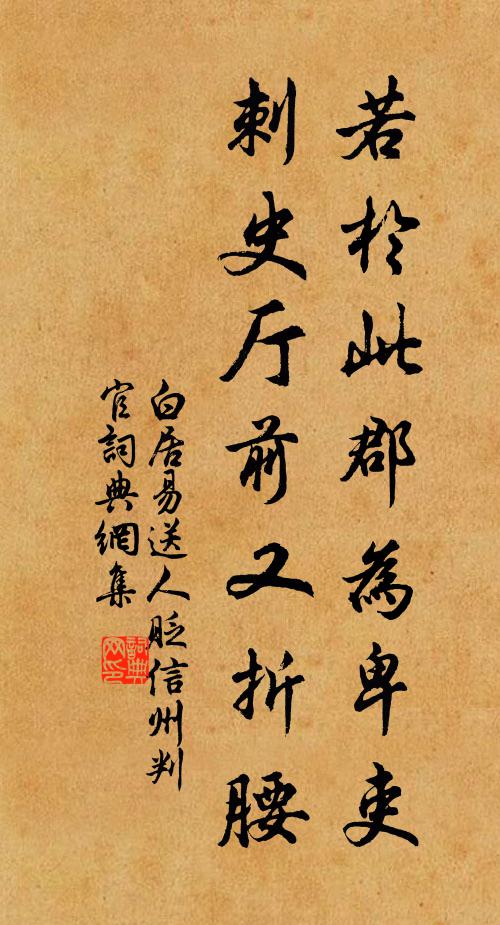 若於此郡為卑吏
刺史厅前又折腰
白居易送人眨信州判
官詞典網集
詞典
网印